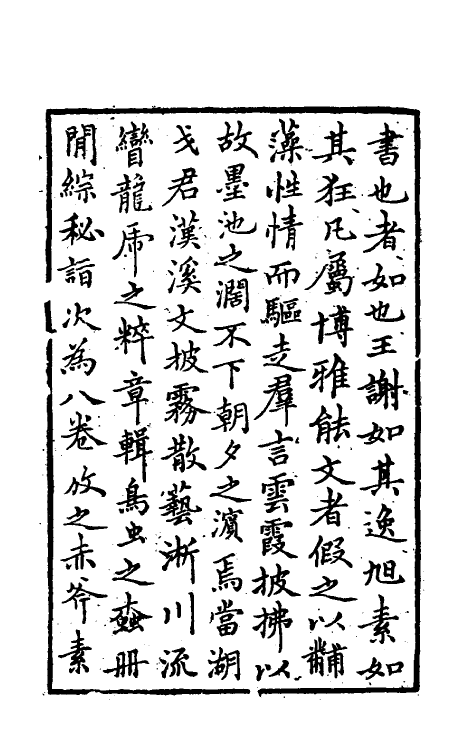 書也者如也王謝如其逸旭素如
其狂凡屬博雅能文者假之以黼
藻性情而驅走羣言雲霞披拂以
故墨池之濶不下朝夕之濱焉當湖
戈君漢溪文披霧散藝淅川流
龍虎之粹章輯鳥虫之蠧冊
閒綜秘詣次為八卷攷之赤斧素